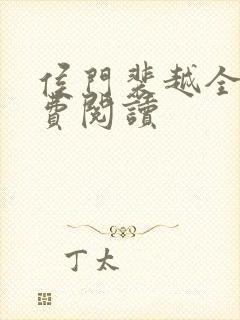 侯門裴越全
費閱讀
丁太